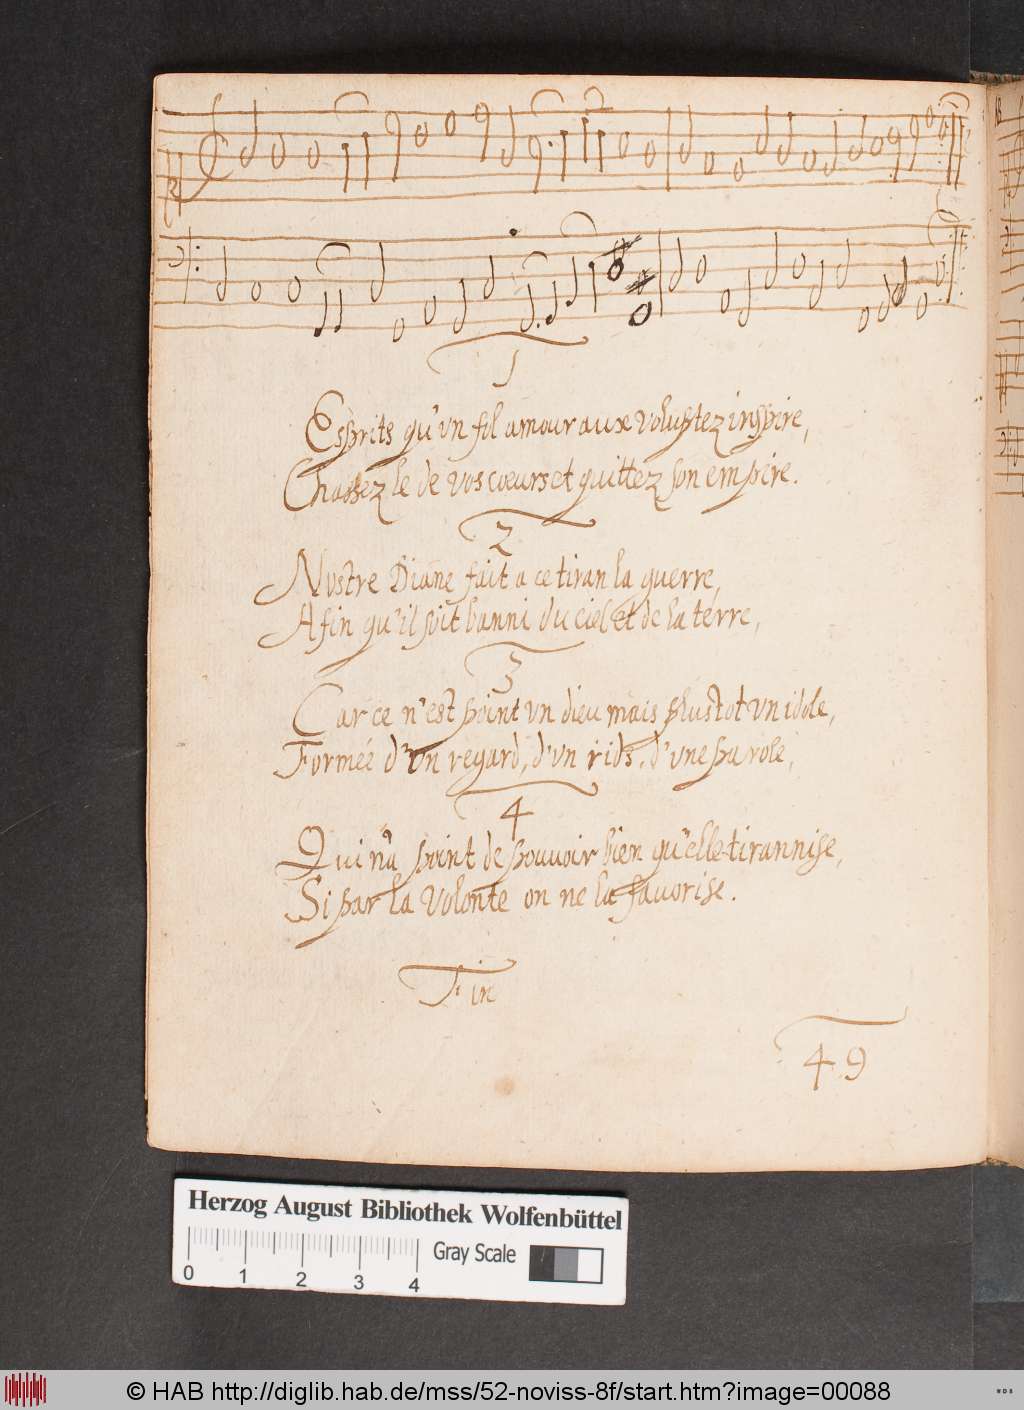 1
Esprits qu'vn fol amour aux voluptez inspire,
Chassez le de vos cœurs et quittez son empire.
2
Nostre Diane fait a ce tiran la guerre,
Afin qu'il soit banni du ciel et de la terre,
3
Car ce n'est point vn dieu mais plustot vn idole,
Formée d'vn regard, d'vn ris, d'vne parole,
4
Qui n'a point de pouvoir bien qu'elle tirannise,
Si par la volonte on ne la favorise.
Fin
49
Herzog August Bibliothek Wolfenbüttel
0 1 2 3 4
Gray Scale
© HAB http://diglib.hab.de/mss/52-noviss-8f/start.htm?image=00088